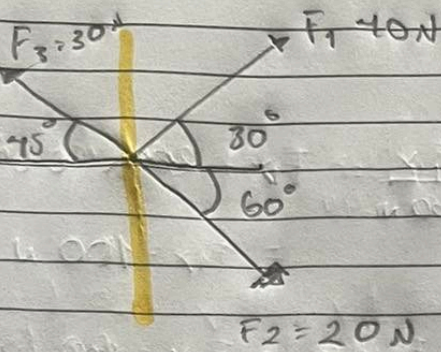 F3 = 30N
F1 40N
45°
30°
60°
F2 = 20N